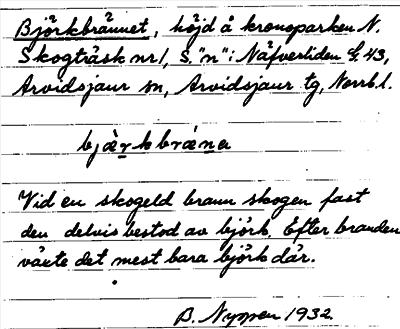 Björkbrännet, höjd å kronoparken N.
Skogträsk nr 1, S. "n" i Näfverliden G. 43,
Arvidsjaur sn, Arvidsjaur tg, Norrb. l.
bjàr̲kbrǽn̲a
Vid en skogeld brann skogen fast
den delvis bestod av björk. Efter branden
växte det mest bara björk där.
B. Nyppen 1932.